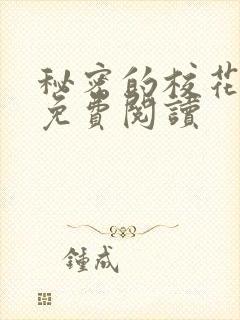 秘密的校花
免費閱讀
鍾成